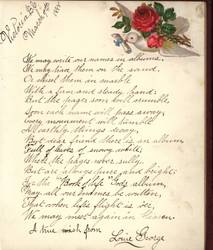 Victoria
March 9th
We may write our names in albums
We may trace them on the sand,
Or chisel them in marble
With a firm and steady hand:
But the pages soon will crumble
Soon each name will pass away,
Every monument will crumble
All earthly things decay,
But dear friend there is an album
Full of leaves of snowy white,
Where the pages never sully
But are always pure and bright:
In the "Book of Life" God's album,
May all our names be written,
That when life's flight is o'er
We may meet again in Heaven.
A true wish from
Love George